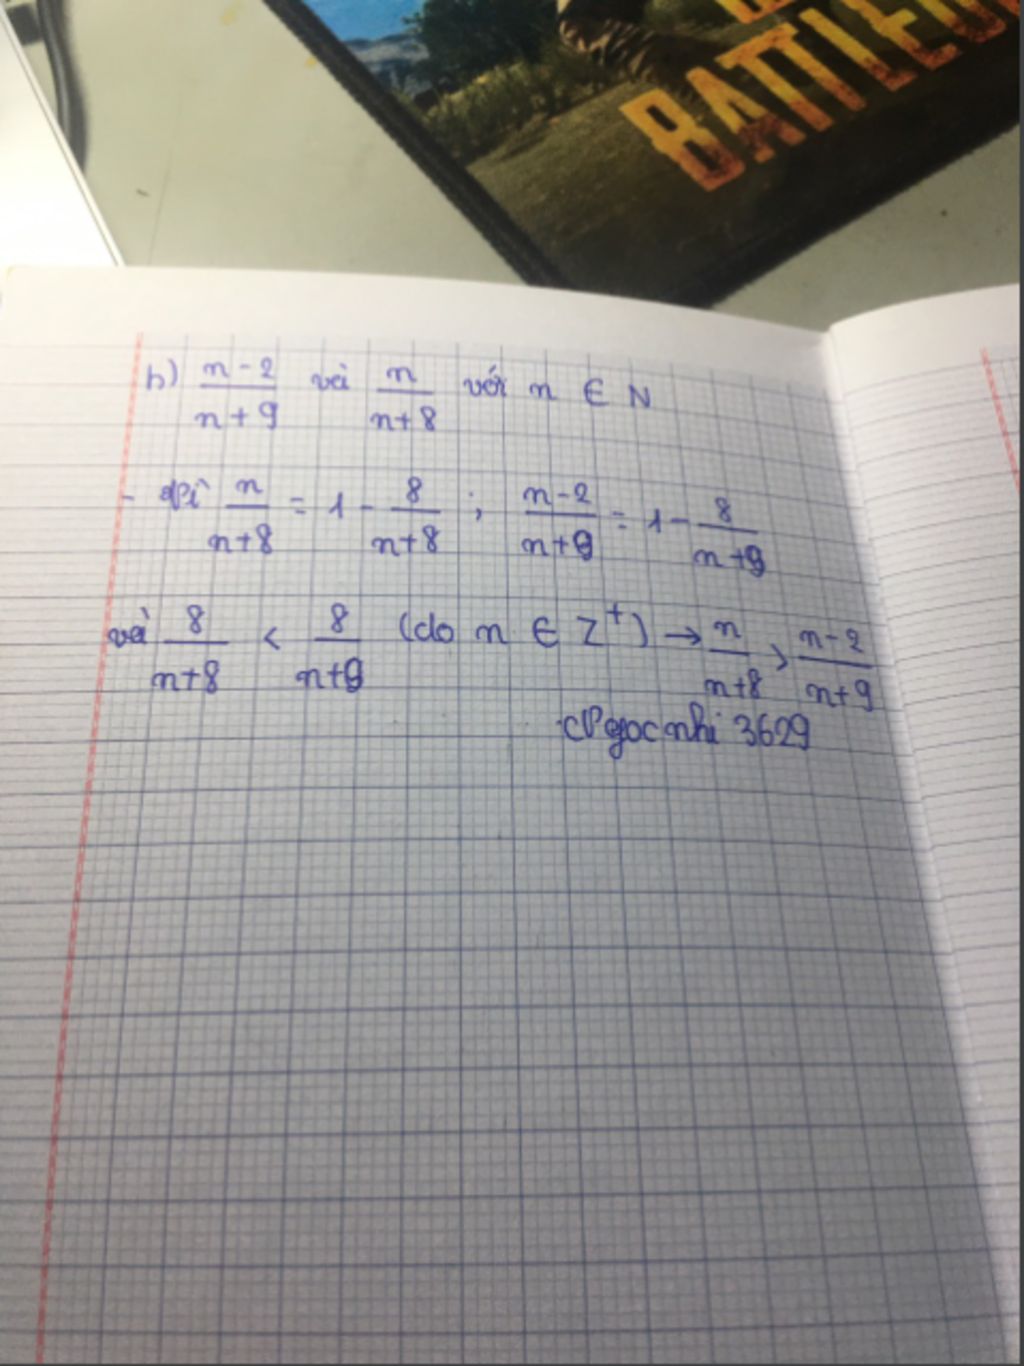 BATTLEG
b) \frac{n-2}{n+9} và \frac{n}{n+8} với n ∈ N
- Vì \frac{n}{n+8} = 1 - \frac{8}{n+8} ; \frac{n-2}{n+9} = 1 - \frac{8}{n+9}
và \frac{8}{n+8} < \frac{8}{n+9} (do n ∈ Z⁺) → \frac{n}{n+8} > \frac{n-2}{n+9}
Ngocnhi 3629